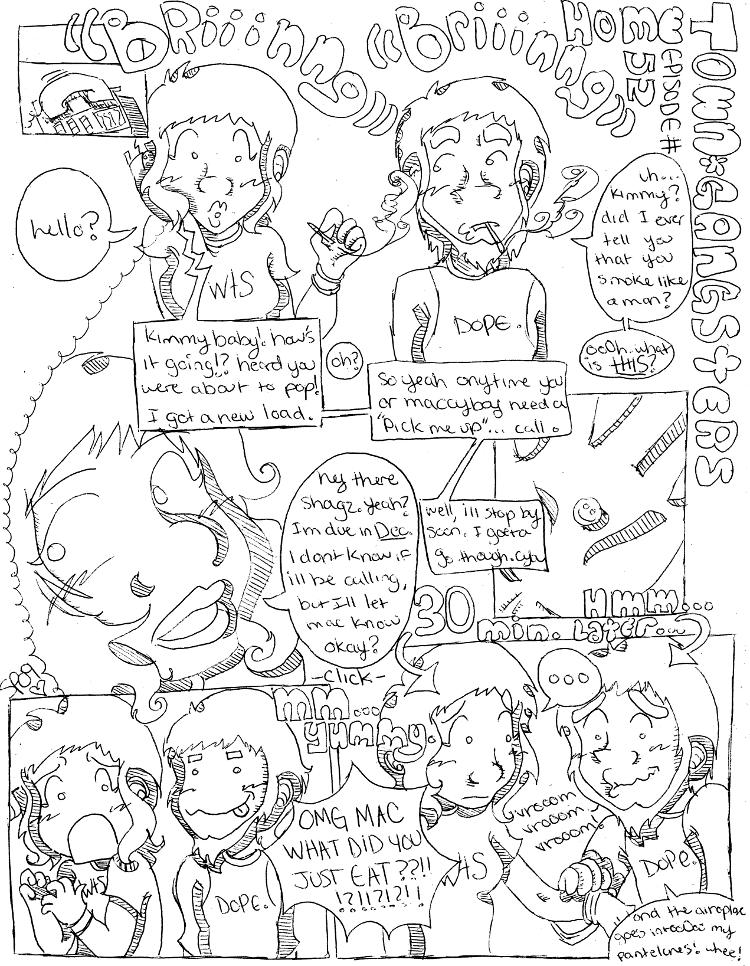 "BRiiinng"
"Briiinng"
HOME
TOWN*GANGStERS
EPISODE #
52
hello?
uh...
kimmy?
did I ever
tell you
that you
smoke like
a man?
oooh. what
is tHIS?
WtS
DOPE.
Kimmy baby! how's
it going!? heard you
were about to pop!
I got a new load.
oh?
So yeah anytime you
or maccyboy need a
"pick me up"... call.
hey there
Shagz. yeah?
I'm due in Dec.
I dont know if
i'll be calling,
but I'll let
mac know
okay?
well, i'll stop by
soon. I gotta
go though. cya
-click-
Hmm...
30
min. Later...
mm...
yummy.
WtS
DOPE.
OMG MAC
WHAT DID YOU
JUST EAT??!!
!?!!?!?!!
...
WtS
vrooom
vrooom
vroom!
DOPE.
and the airoplane
goes into my
pantelones! whee!